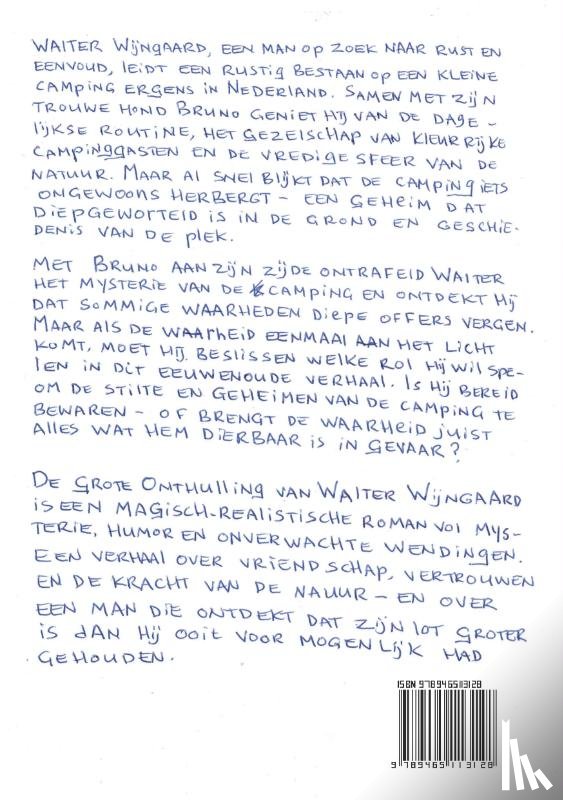 WALTER WIJNGAARD, EEN MAN OP ZOEK NAAR RUST EN
EENVOUD, LEIDT EEN RUSTIG BESTAAN OP EEN KLEINE
CAMPING ERGENS IN NEDERLAND. SAMEN MET ZIJN
TROUWE HOND BRUNO GENIET HIJ VAN DE DAGE-
LIJKSE ROUTINE, HET GEZELSCHAP VAN KLEURRIJKE
CAMPINGGASTEN EN DE VREDIGE SFEER VAN DE
NATUUR. MAAR AL SNEL BLIJKT DAT DE CAMPING IETS
ONGEWOONS HERBERGT - EEN GEHEIM DAT
DIEPGEWORTELD IS IN DE GROND EN GESCHIE-
DENIS VAN DE PLEK.
MET BRUNO AAN ZIJN ZIJDE ONTRAFELD WALTER
HET MYSTERIE VAN DE CAMPING EN ONTDEKT HIJ
DAT SOMMIGE WAARHEDEN DIEPE OFFERS VERGEN.
MAAR ALS DE WAARHEID EENMAAL AAN HET LICHT
KOMT, MOET HIJ BESLISSEN WELKE ROL HIJ WIL SPE-
LEN IN DIT EEUWENOUDE VERHAAL. IS HIJ BEREID
OM DE STILTE EN GEHEIMEN VAN DE CAMPING TE
BEWAREN - OF BRENGT DE WAARHEID JUIST
ALLES WAT HEM DIERBAAR IS IN GEVAAR?
DE GROTE ONTHULLING VAN WALTER WIJNGAARD
IS EEN MAGISCH-REALISTISCHE ROMAN VOL MYS-
TERIE, HUMOR EN ONVERWACHTE WENDINGEN.
EEN VERHAAL OVER VRIENDSCHAP, VERTROUWEN
EN DE KRACHT VAN DE NAUUR - EN OVER
EEN MAN DIE ONTDEKT DAT ZIJN LOT GROTER
IS DAN HIJ OOIT VOOR MOGENLIJK HAD
GEHOUDEN.
ISBN 9789465113128
9 789465 113128